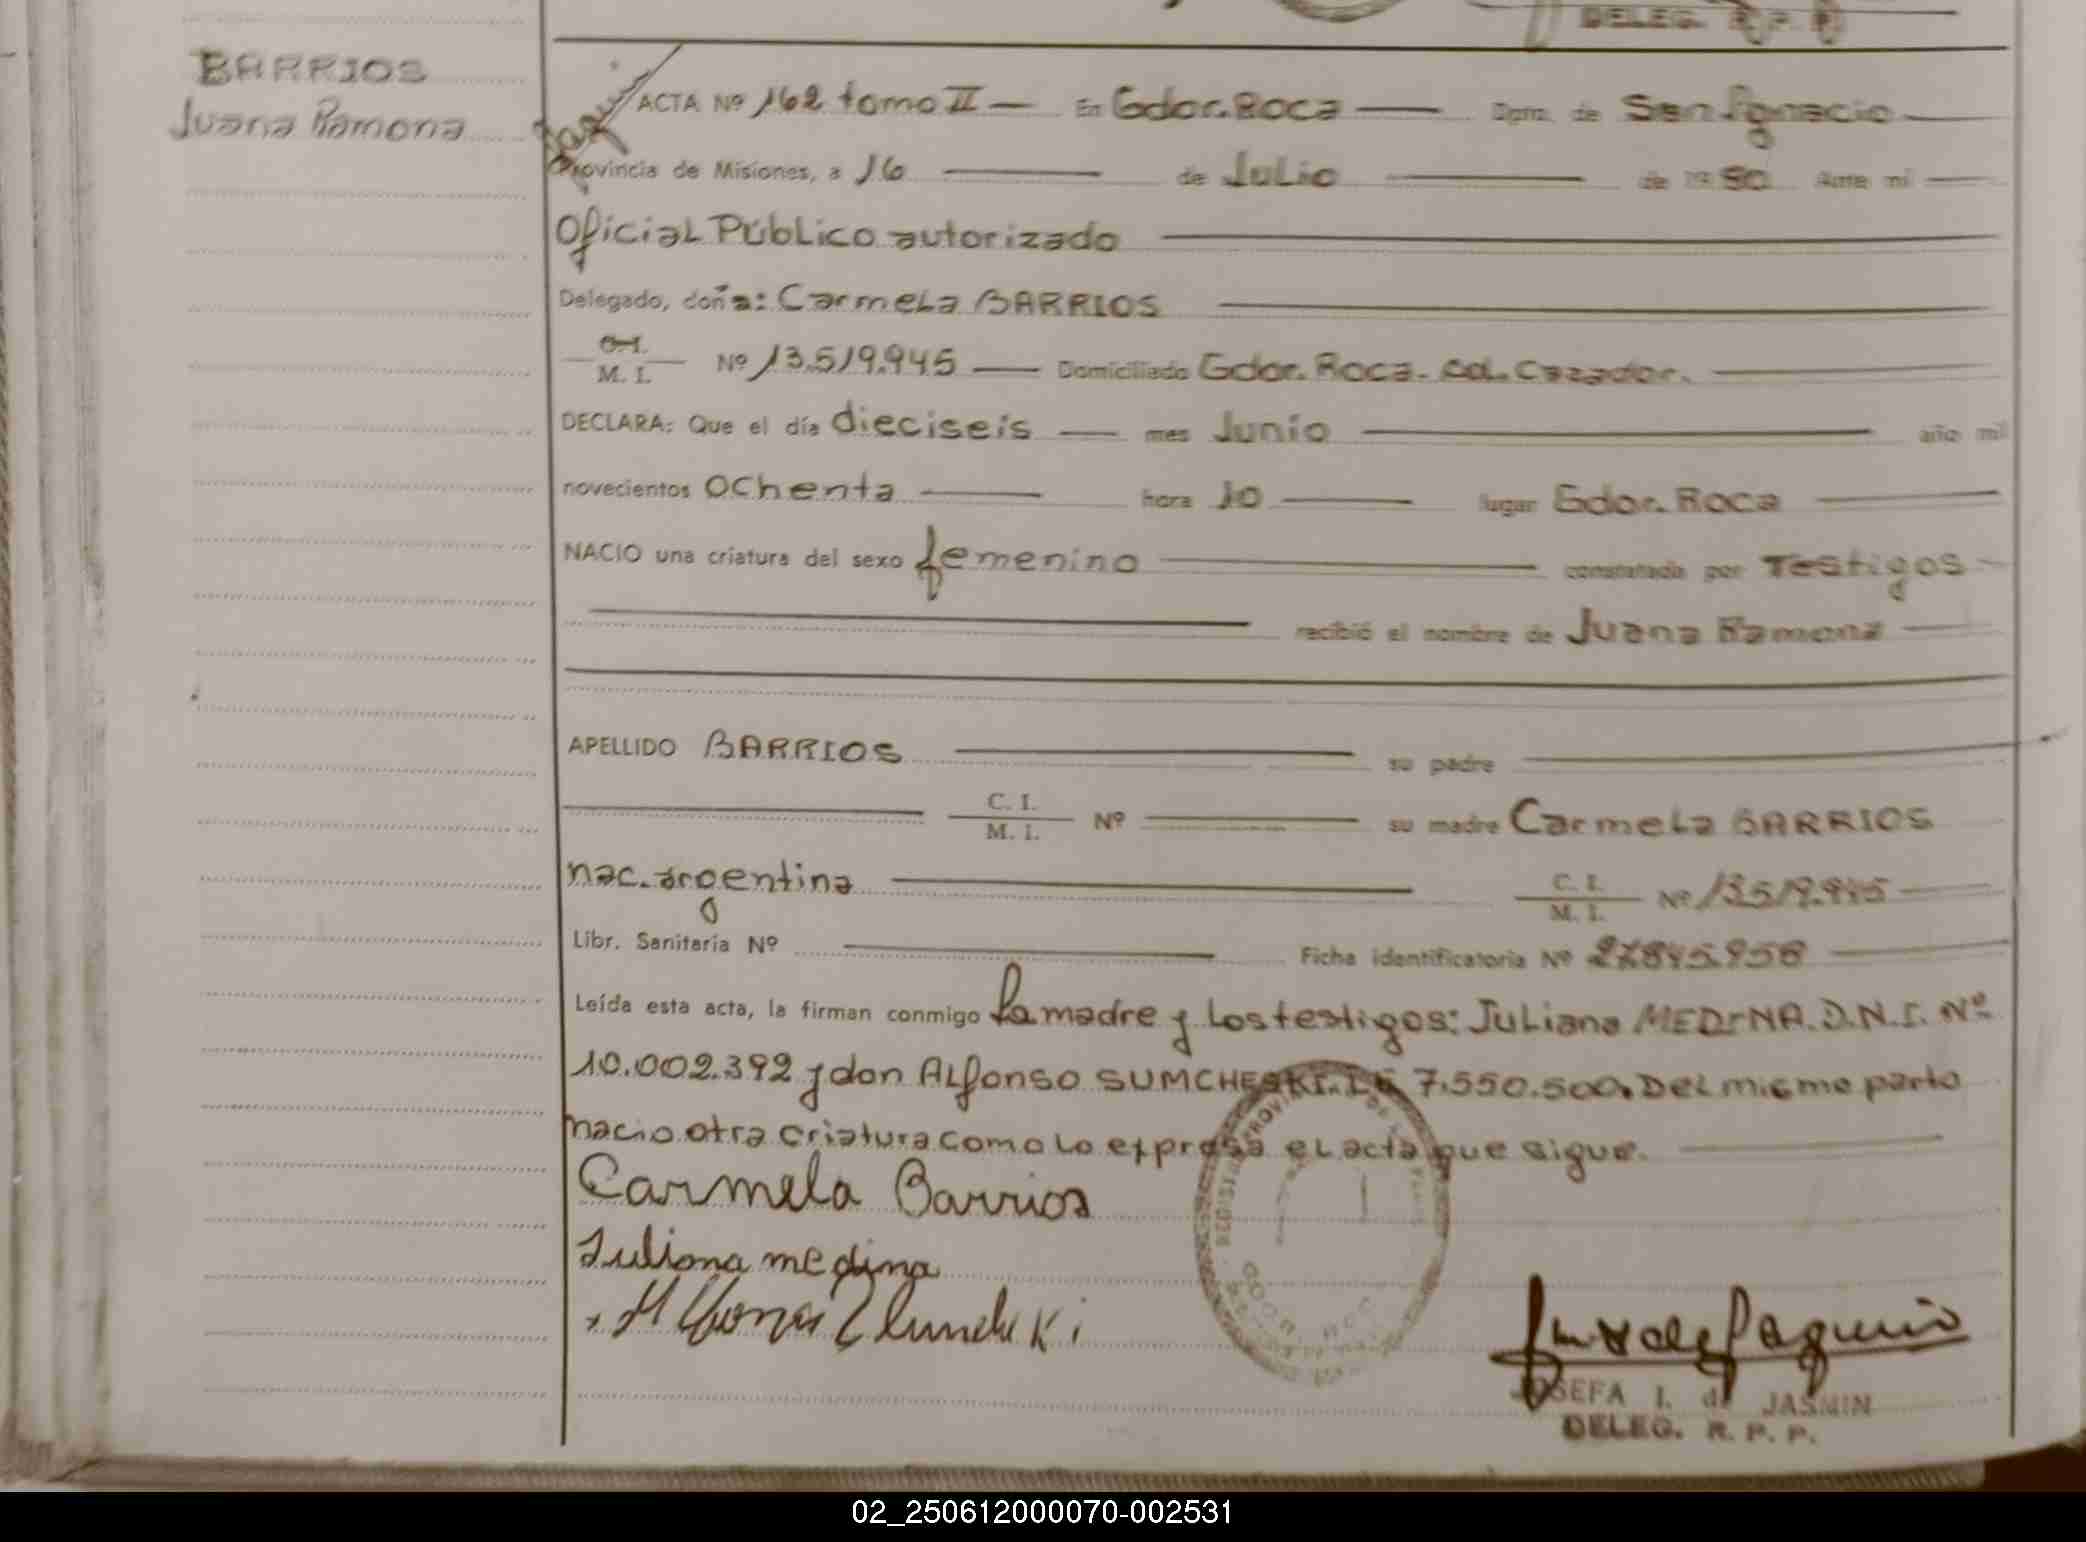 DELEG. R. P. P.
BARRIOS
Juana Ramona
ACTA Nº 162 tomo II — En Gdor. Roca — Dpto. de San Ignacio
Provincia de Misiones, a 16 — de Julio — de 1980 Ante mí —
Oficial Público autorizado
Delegado, doña: Carmela BARRIOS
C.I.
M. I. Nº 13.519.945 — Domiciliado Gdor. Roca. Col. Cazador.
DECLARA: Que el día dieciseis — mes Junio — año mil
novecientos ochenta — hora 10 — lugar Gdor. Roca
NACIO una criatura del sexo femenino — constatado por Testigos
recibió el nombre de Juana Ramona
APELLIDO BARRIOS — su padre
C. I.
M. I. Nº — su madre Carmela BARRIOS
nac. argentina — C. I.
M. I. Nº 13.519.945
Libr. Sanitaria Nº — Ficha identificatoria Nº 27.845.958
Leída esta acta, la firman conmigo la madre y los testigos: Juliana MEDINA. D.N.I. Nº
10.002.392 y don Alfonso SUMCHESKI. LE 7.550.500. Del mismo parto
nacio otra criatura como lo expresa el acta que sigue.
Carmela Barrios
Juliana medina
JOSEFA I. de JASMIN
DELEG. R. P. P.
02_250612000070-002531